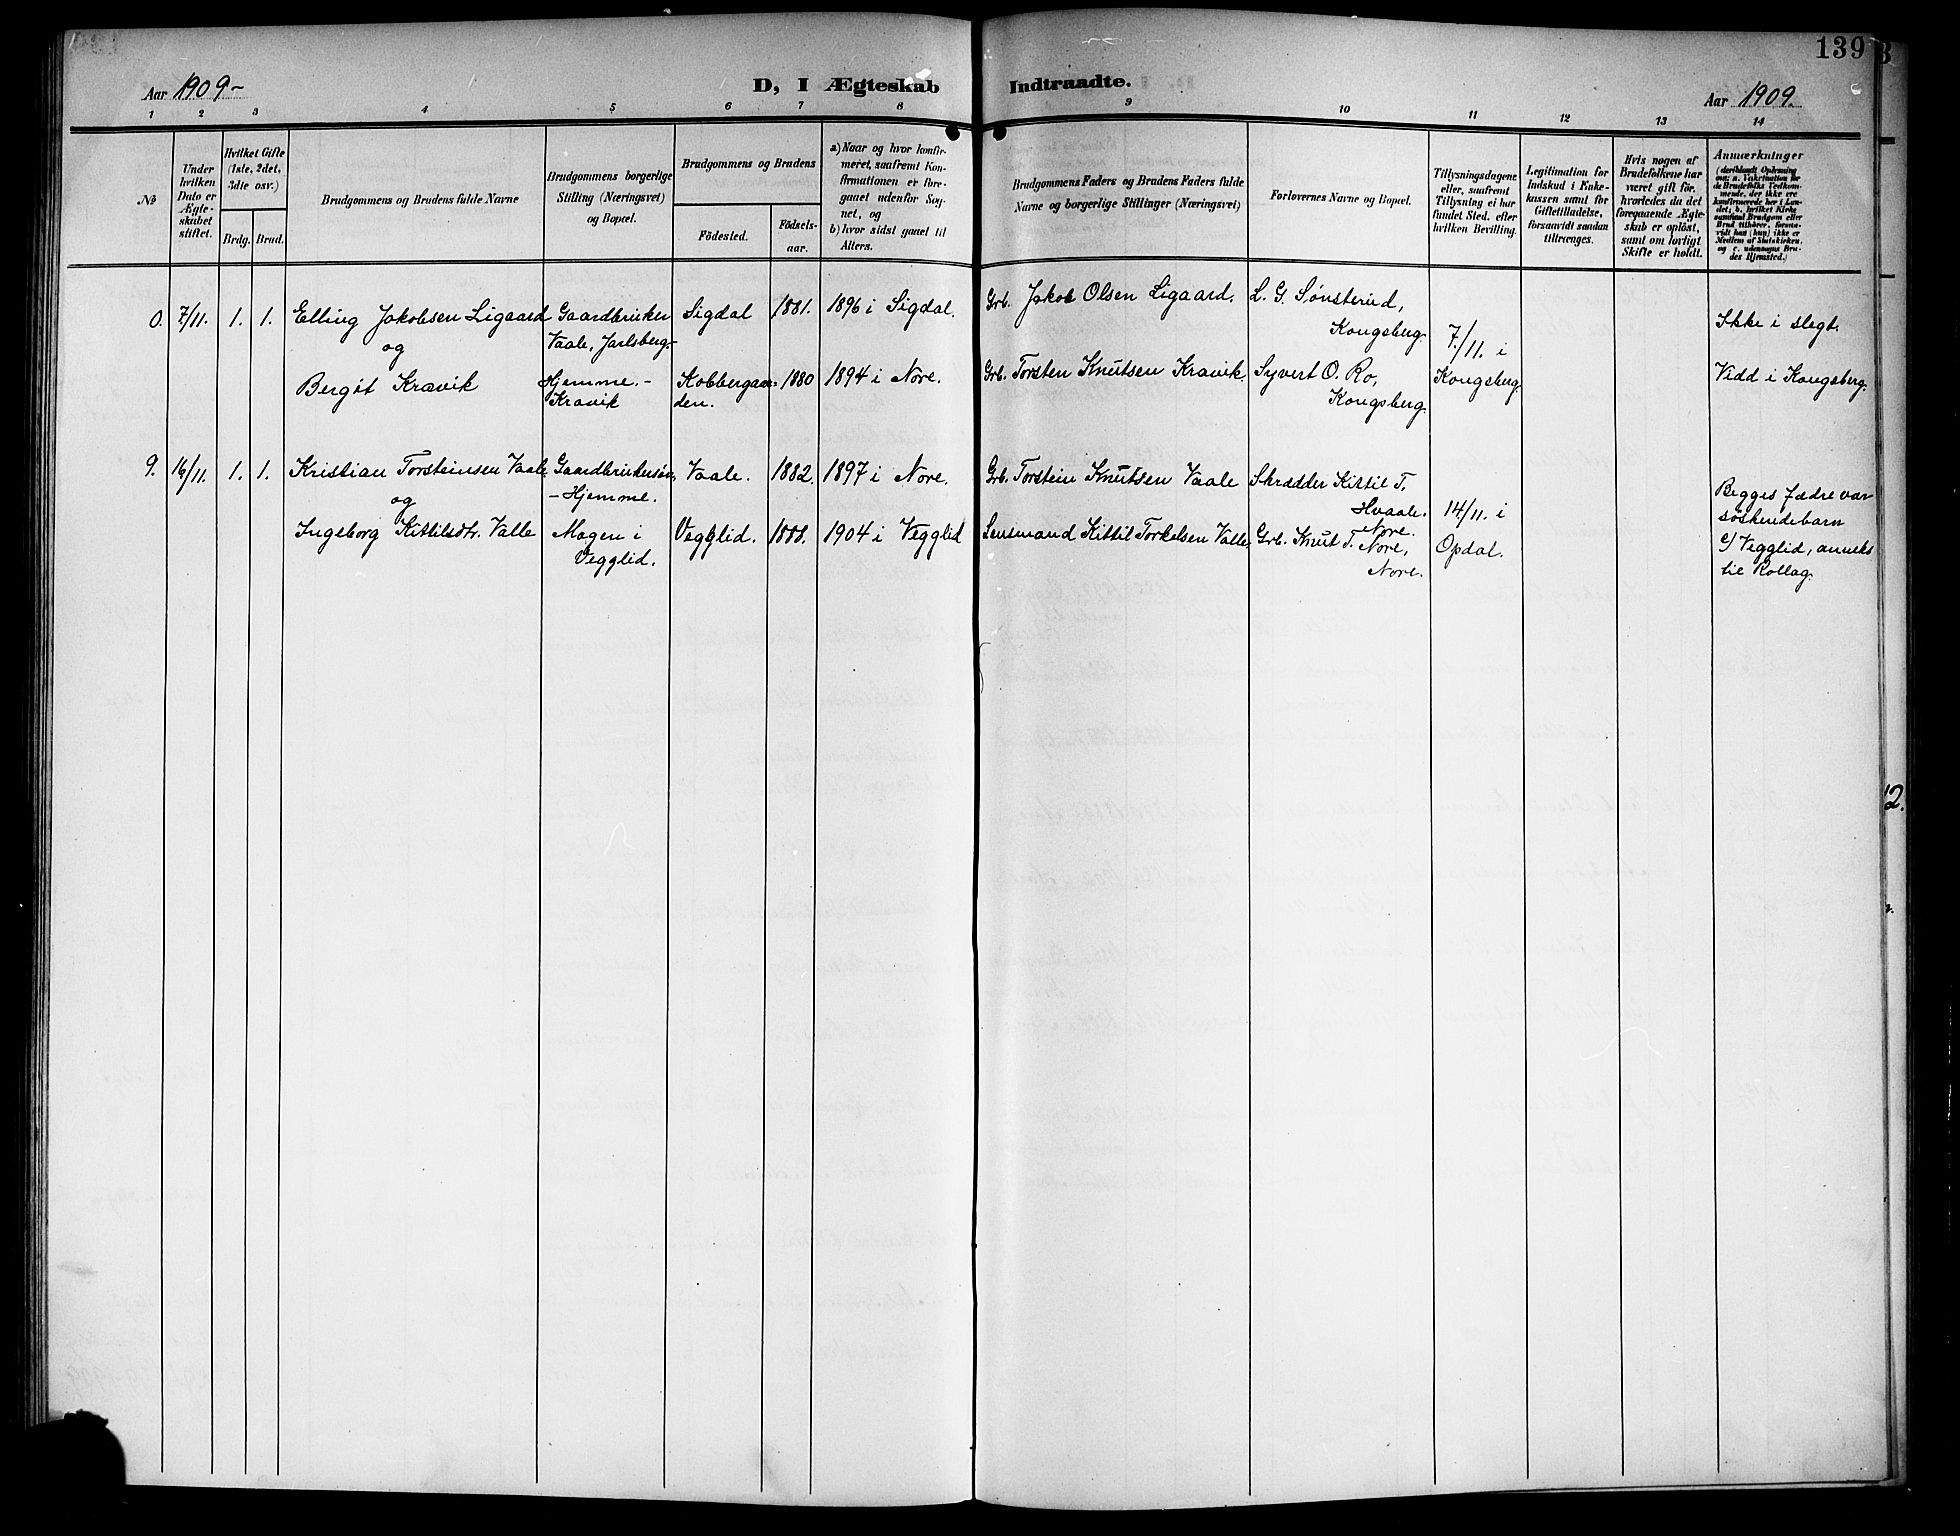 139
Aar 1909-
D, I Ægteskab Indtraadte.
Aar 1909.
1 2 3 4 5 6 7 8 9 10 11 12 13 14
No
Under hvilken Dato er Ægteskabet stiftet.
Hvilket Gifte (1ste, 2det, 3die osv.)
Brdg. Brud.
Brudgommens og Brudens fulde Navne
Brudgommens borgerlige Stilling (Næringsvei) og Bopæl.
Brudgommens og Brudens
Födested.
Födsels-aar.
a) Naar og hvor konfirmeret, saafremt Konfirmationen er foregaaet udenfor Sognet, og
b) hvor sidst gaaet til Alters.
Brudgommens Faders og Brudens Faders fulde Navne og borgerlige Stillinger (Næringsvei)
Forlovernes Navne og Bopæl.
Tillysningsdagene eller, saafremt Tillysning ei har fundet Sted, efter hvilken Bevilling.
Legitimation for Indskud i Enkekassen samt for Giftetilladelse, forsaavidt saadan tiltrænges.
Hvis nogen af Brudefolkene har været gift för, hvorledes da det foregaaende Ægteskab er oplöst, samt om lovligt Skifte er holdt.
Anmærkninger
(deriblandt Oplysning om: a. Vakcination for de Brudefolks Vedkommende, der ikke ere konfirmerede her i Landet; b. hvilket Kirkesamfund Brudgom eller Brud tilhörer, forsaavidt han (hun) ikke er Medlem af Statskirken, og c. udensogns Brudes Hjemsted.)
0. 7/11. 1. 1. Elling Jakobsen Ligaard Gaardbruker Sigdal 1881. 1896 i Sigdal. Grb. Jakob Olsen Ligaard. L. G. Sønsterud,
Kongsberg. Ikke i slegt.
og Vaale, Jarlsberg.- 7/11. i
Bergit Kravik Hjemme.- Kobbergaar- 1880 1894 i Nore. Grb. Torsten Knutsen Kravik. Syvert O. Ro, Kongsberg. Vidd i Kongsberg.
Kravik den. Kongsberg.
9. 16/11. 1. 1. Kristian Torsteinsen Vaale Gaardbrukersøn, Vaale. 1882. 1897 i Nore. Grb. Torstein Knutsen Vaale Skrædder Kittil T.
og - Hjemme. Hvaale. 14/11. i Begges fædre var
Nore. søskendebarn
Ingeborg Kittilsdtr. Valle Mogen i Vegglid. 1888. 1904 i Vegglid Lensmand Kittil Torkelsen Valle. Grb. Knut T. Nore, Opdal. c/ Vegglid, anneks
Vegglid. Nore. til Rollag.